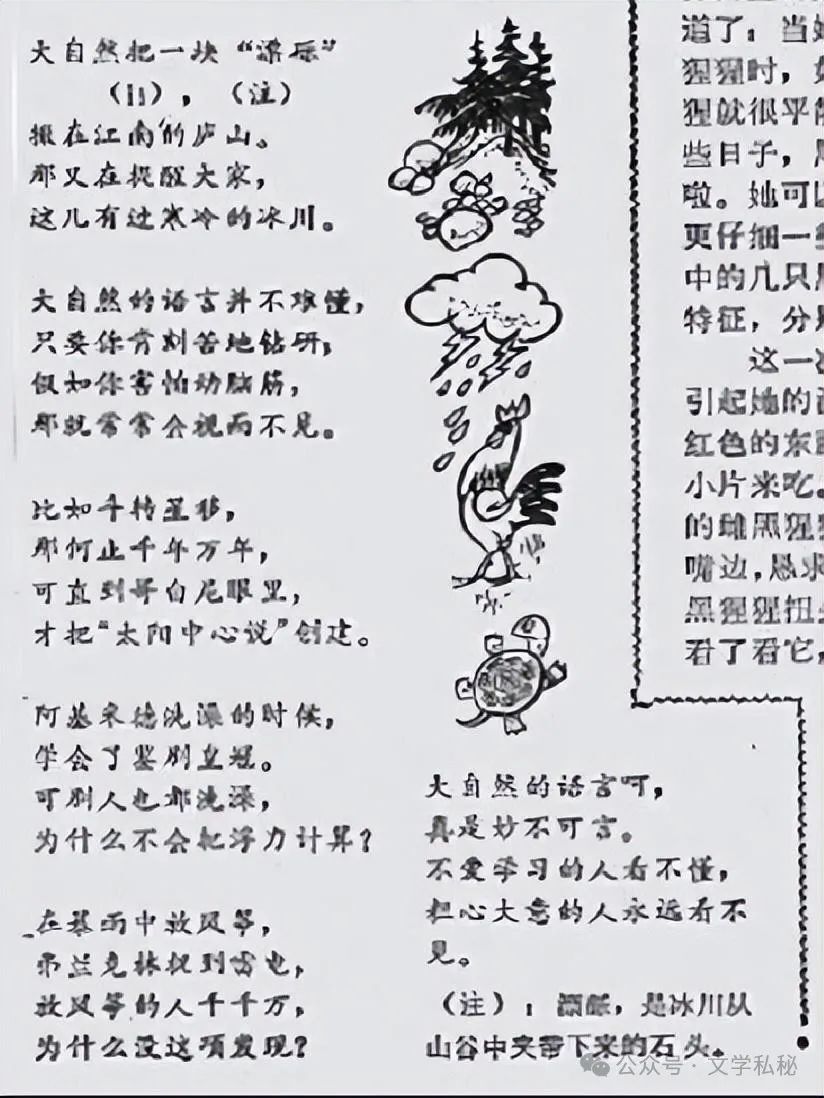 大自然把一块“漂砾”
（li），（注）
搬在江南的庐山。
那又在提醒大家，
这儿有过寒冷的冰川。
大自然的语言并不难懂，
只要你肯刻苦地钻研；
假如你害怕动脑筋，
那就常常会视而不见。
比如斗转星移，
那何止千年万年，
可直到哥白尼眼里，
才把“太阳中心说”创建。
阿基米德洗澡的时候，
学会了鉴别皇冠。
可别人也都洗澡，
为什么不会把浮力计算？
在暴雨中放风筝，
弗兰克林捉到雷电，
放风筝的人千千万，
为什么没这项发现？
大自然的语言呵，
真是妙不可言。
不爱学习的人看不懂，
粗心大意的人永远看不
见。
（注）：漂砾，是冰川从
山谷中夹带下来的石头。
道了：当她
猩猩时，
猩就很平
些日子，
啦。她可以
更仔细一些
中的几只
特征，分
这一
引起她的
红色的东
小片来吃。
的雌黑猩
嘴边，恳求
黑猩猩扭
看了看它，
公众号 · 文学私秘